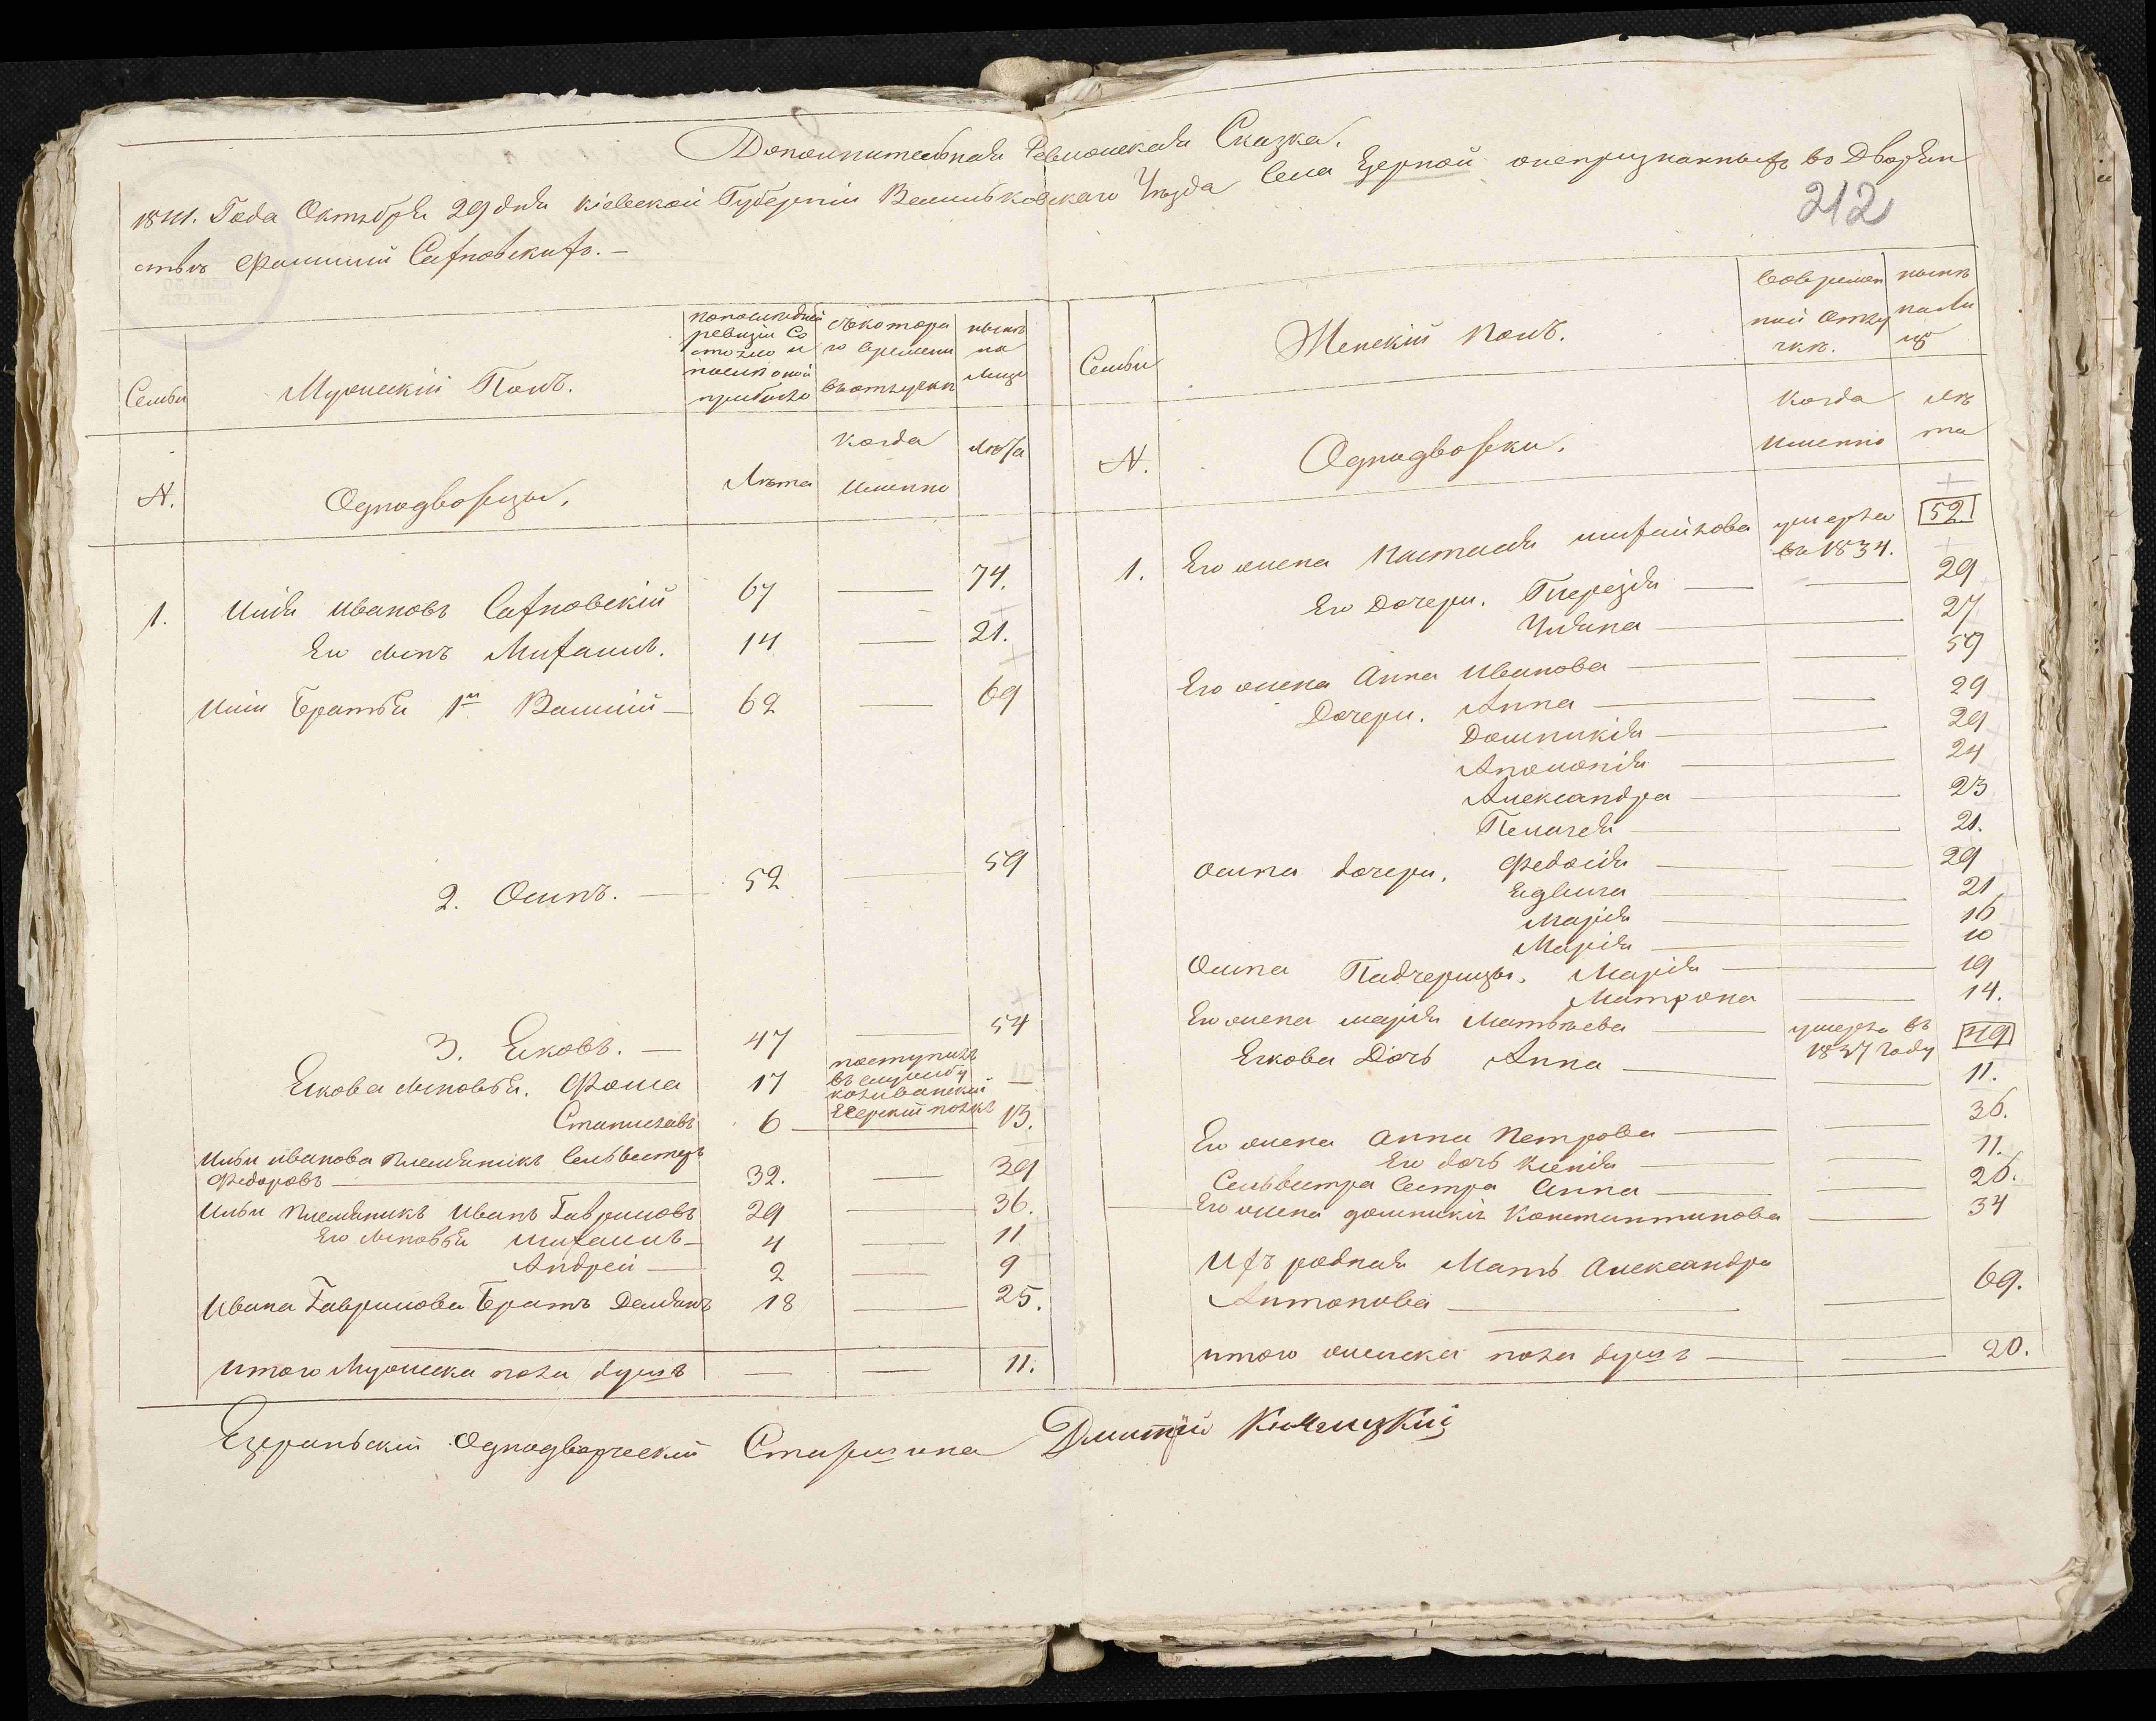 Дополнительная Ревизская Сказка.
1841. Года Октября 29 дня Кіевской Губерніи Васильковскаго Уѣзда Села Езерной о непризнанныхъ въ Дворян
ствѣ Фамилій Сахновскихъ. —
212
Семьи
Мужескій Полъ.
по последней ревизіи Состояло и послѣ оной прибыло
съ котораго времени въ отлучкѣ
нынѣ на лицо
N.
Однодворцы.
Лѣта
когда именно
Лѣта
1. Илія Ивановъ Сахновскій 67 — 74.
Его сынъ Михаилъ. 14 — 21.
Иліи Братья 1й Василій — 62 — 69
2. Осипъ. — 52 — 59
3. Яковъ. — 47 — 54
Якова сыновья. Фома 17 поступилъ въ службу Егерскій полкъ —
Станиславъ 6 — 13.
Ильи Иванова Племянникъ Сельвестръ
Федоровъ — 32. — 39
Ильи Племянникъ Иванъ Гавриловъ 29 — 36.
Его сыновья Михаилъ — 4 — 11
Андрей — 2 — 9
Ивана Гаврилова Братъ Демянъ 18 — 25.
Итого Мужеска пола душъ — — 11.
Семьи
Женскій Полъ.
Во временной отлучкѣ.
нынѣ на лицо
N.
Однодворки.
Когда именно
лѣта
1. Его жена Настасія Михайлова умерла въ 1834. 52
Его Дочери. Терезія — — 29
Уліана — 27
Его жена Анна Иванова — — 59
Дочери. Анна — — 29
Домникія — 29
Аполонія — 24
Александра — 23
Пелагея — 21.
Осипа дочери. Федосія — — 29
21
Марія — 16
Марія — 10
Осипа Падчерицы. Марія — 19
Матрона — 14.
Его жена Марія Матвѣева — умерла въ 1837 году 49
Якова Дочь Анна — — 11.
Его жена Анна Петрова — — 36.
Его дочь Ксенія — — 11.
Сельвестра Сестра Анна — — 26.
Его жена Домникія Константинова — 34
Ихъ родная Мать Александра
Антонова — — 69.
Итого женска пола душъ — — 20.
Езерянскій Однодворческій Старшина Дмитрій